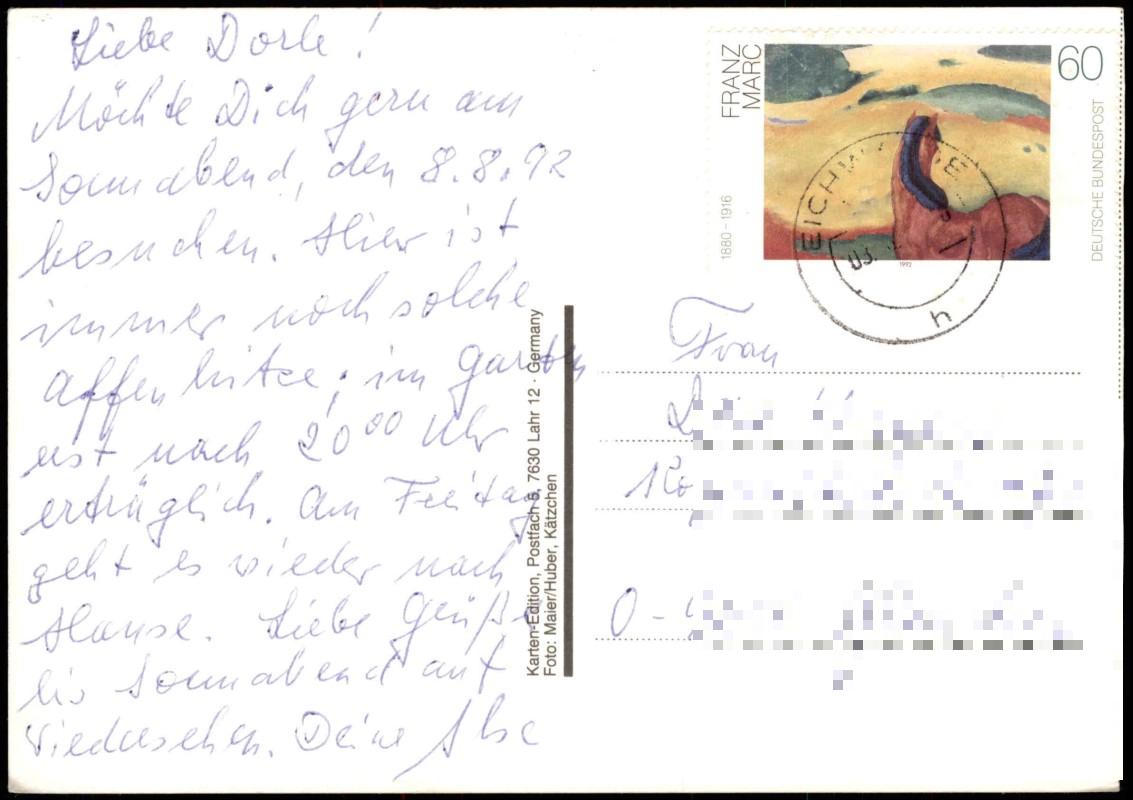 Liebe Dorle!
Möchte Dich gern am
Sonnabend, den 8.8.92
besuchen. Hier ist
immer noch solche
Affenhitze; im Garten
erst nach 20⁰⁰ Uhr
erträglich. Am Freitag
geht es wieder nach
Hause. Liebe Grüße
bis Sonnabend auf
Wiedersehen. Deine Ilse
Karten-Edition, Postfach 5, 7630 Lahr 12 · Germany
Foto: Maier/Huber, Kätzchen
FRANZ
MARC
60
1880–1916
DEUTSCHE BUNDESPOST
1992
EICHW
h
Frau
O-